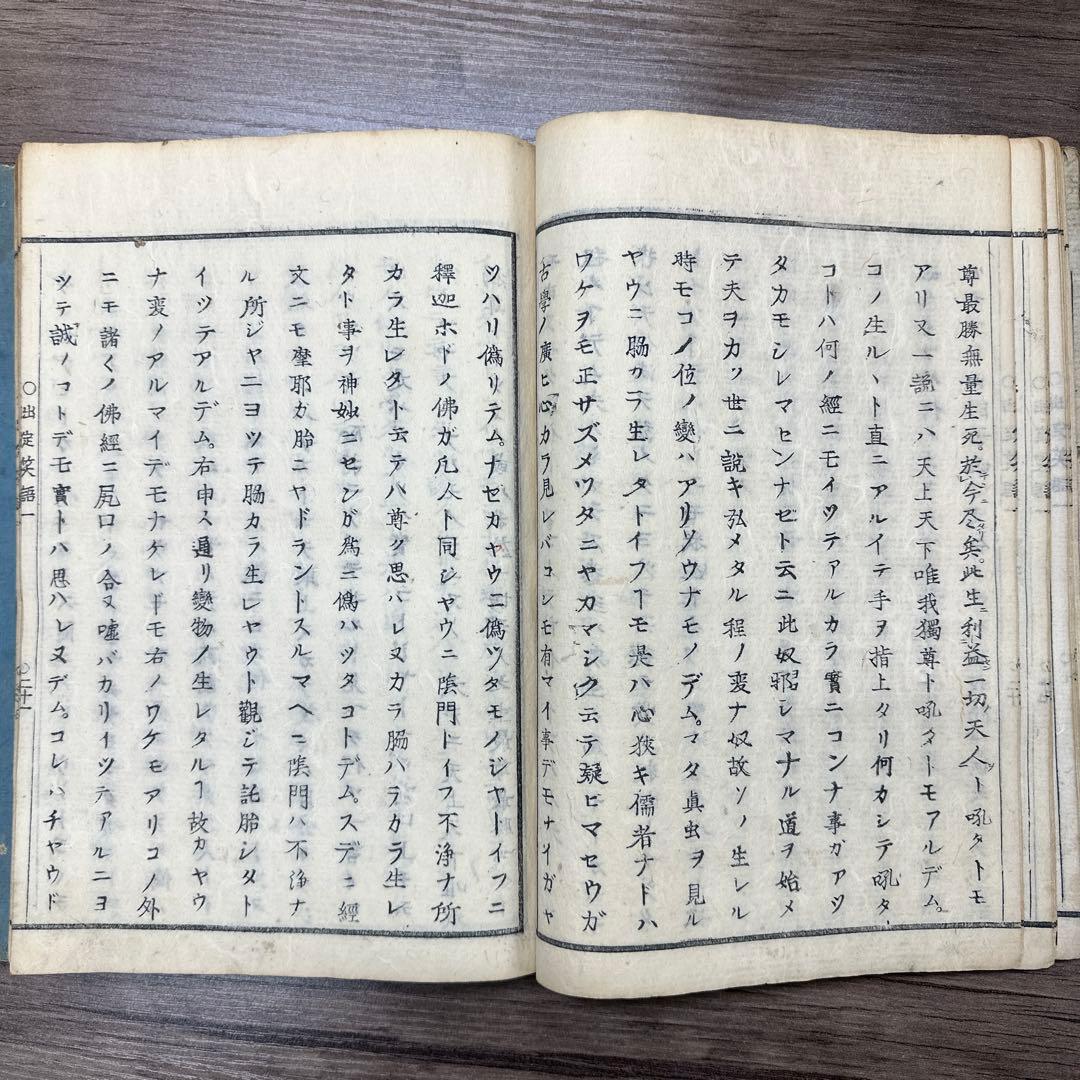 尊最勝無量生死。於今尽矣。此生利益一切天人ト吼タトモ
アリ又一説ニハ天上天下唯我獨尊ト吼タトモアルデム。
コノ生ルヽト直ニアルイテ手ヲ指上タリ何カシテ吼タ
コトハ何ノ經ニモイツテアルカラ實ニコンナ事ガアツ
タカモシレマセンナゼト云ニ此奴邪シマナル道ヲ始メ
テ夫ヲカツ世ニ説キ弘メタル程ノ変ナ奴故ソノ生レル
時モコノ位ノ變ハアリソウナモノデム。マタ眞虫ヲ見ル
ヤウニ腸カラ生レタトイフヿモ是ハ心狹キ儒者ナドハ
ワケヲモ正サズメツタニヤカマシク云テ疑ヒマセウガ
古學ノ廣ヒ心カラ見レバコレモ有マイ事デモナイガヤ
ツハリ僞リテム。ナゼカヤウニ僞ツタモノジヤトイフニ
釋迦ホドノ佛ガ凡人ト同ジヤウニ陰門トイフ不浄ナ所
カラ生レタト云テハ尊ク思ハレヌカラ腸ハラカラ生レ
タト事ヲ神妙ニセンガ爲ニ僞ハツタコトデム。スデニ經
文ニモ摩耶カ胎ニヤドラントスルマヘニ陰門ハ不浄ナ
ル所ジヤニヨツテ腸カラ生レヤウト觀ジテ託胎シタト
イツテアルデム。右申ス通リ變物ノ生レタルヿ故カヤウ
ナ変ノアルマイデモナケレドモ右ノワケモアリコノ外
ニモ諸々ノ佛經ニ尻口ノ合ヌ嘘バカリイツテアルニヨ
ツテ誠ノコトデモ實トハ思ハレヌデム。コレハチヤウド
〇出定笑語一
〇二十一